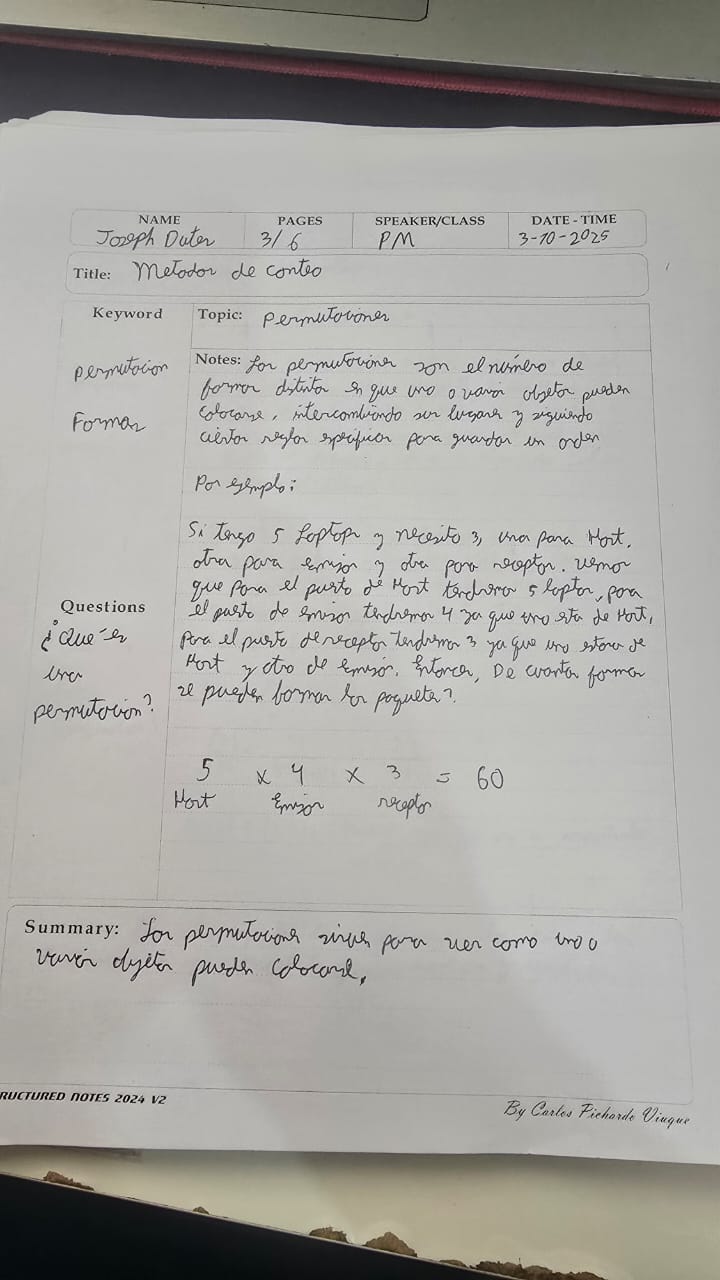 NAME PAGES SPEAKER/CLASS DATE - TIME
Joseph 3/6 PM 3-10-2025
Title: Metodos de conteo
Keyword
Topic: Permutaciones
permutacion
Formas
Notes: Las permutaciones son el número de
formas distintas en que uno o varios objetos pueden
colocarse, intercambiando sus lugares y siguiendo
ciertas reglas especificas para guardar un orden
Por ejemplo:
Si tengo 5 Laptops y necesito 3, una para Host,
otra para emisor y otra para receptor. vemos
que para el puesto de Host tendremos 5 laptos, para
el puesto de emisor tendremos 4 ya que uno esta de Host,
para el puesto de receptor tendremos 3 ya que uno estara de
Host y otro de Emisor. Entonces, De cuantas formas
se pueden formar los paquetes?
Questions
¿Que es
una
permutacion?
5 x 4 x 3 = 60
Host Emisor receptor
Summary: Las permutaciones sirven para ver como uno o
varios objetos pueden colocarse.
RUCTURED NOTES 2024 V2
By Carlos Pichardo Viuque